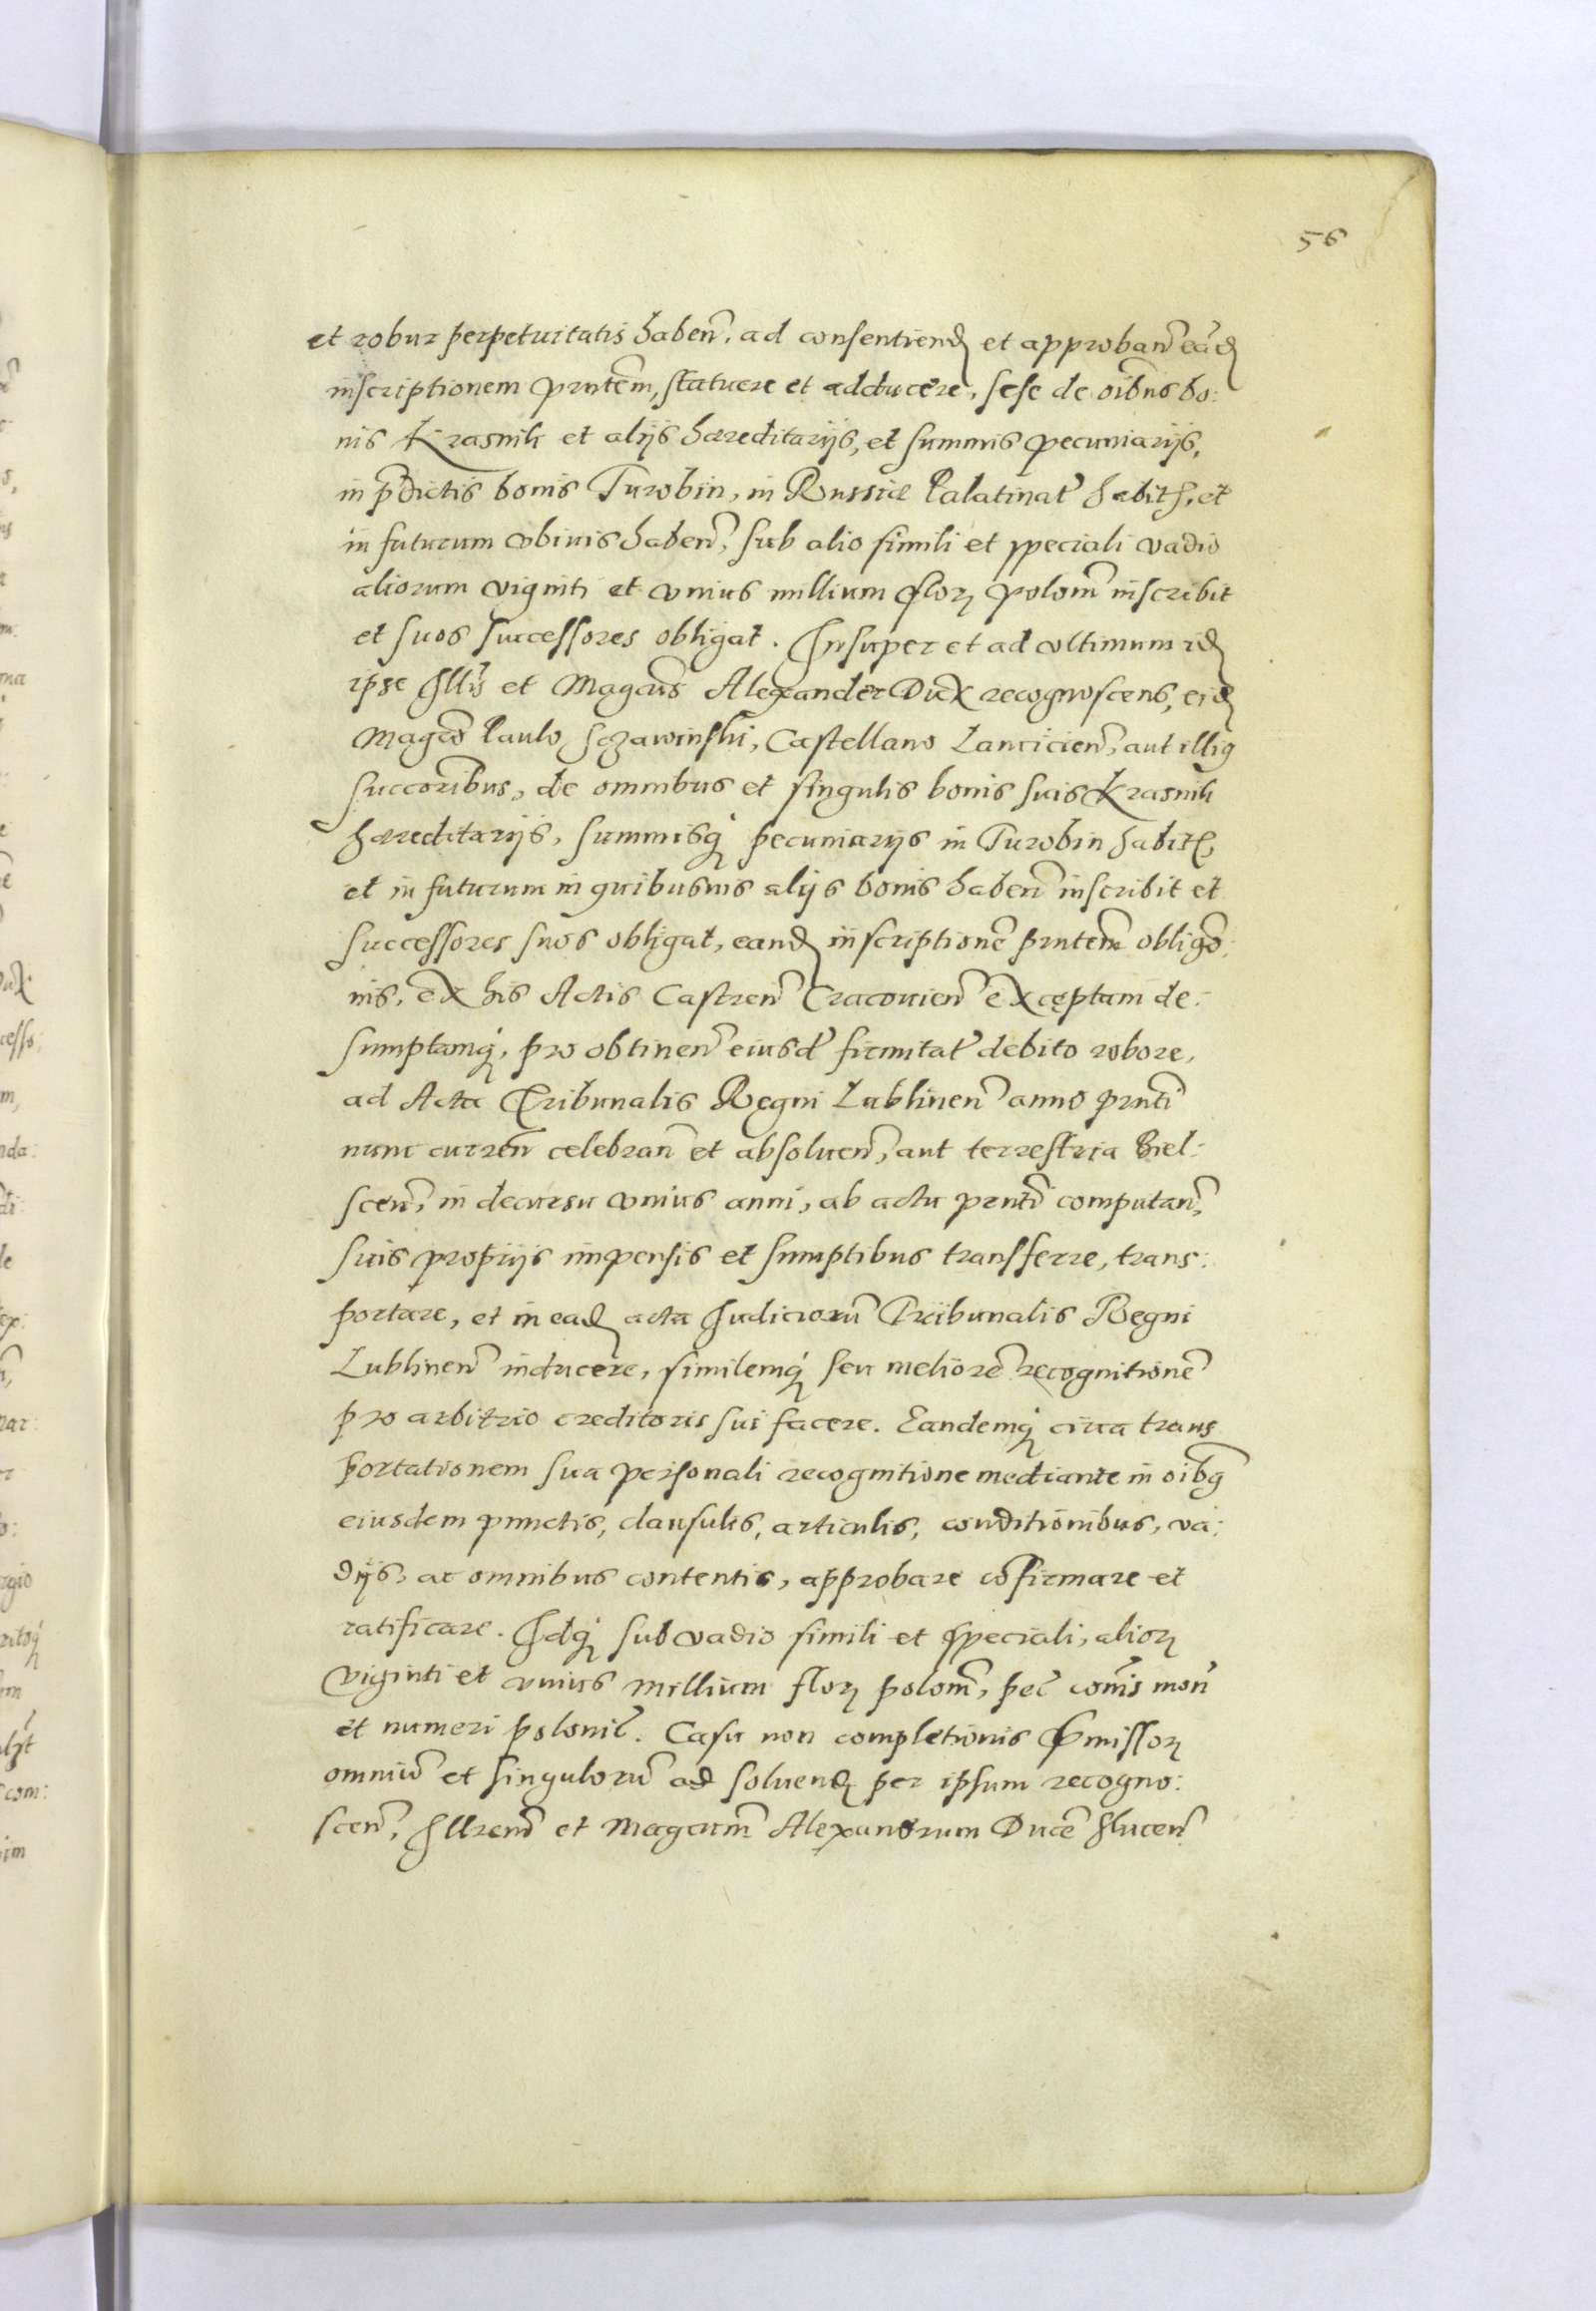 56
et robur perpetuitatis haben̄, ad consentiend et approban̄ eād
inscriptionem pn̄tem, statuere et adducere, sese de oībus bo:
nis Krasnik et alijs hæreditarijs, et summis pecuniarijs,
in p̄dictis bonis Turobin, in Russiæ Palatinat̄ habit, et
in futurum vbiuis haben̄, sub alio simili et speciali vadio
aliorum viginti et vnius millium flor polon̄ inscribit
et suos successores obligat. Insuper et ad vltimum id
ipse Illr̄is et Magcūs Alexander Dux recognoscens, eid
Magcō Paulo Sczawinski, Castellano Lancicien̄, aut illiꝰ
succoribus, de omnibus et singulis bonis suis Krasnik
hæreditarijs, summisq̨ pecuniarijs in Turobin habit,
et in futurum in quibusuis alijs bonis haben̄ inscribit et
successores suos obligat, eand inscriptionē pn̄tem obligō:
nis, ex his Actis Castren̄ Cracouien̄ exceptam de:
sumptamq̨, pro obtinen̄ eiusd̄ firmitat̄ debito robore,
ad Acta Tribunalis Regni Lublinen̄ anno pn̄ti
nunc curren̄ celebran̄ et absoluen̄, aut terrestria Biel:
scen̄, in decursu vnius anni, ab actu pn̄ti computan̄,
suis proprijs impensis et sumptibus transferre, trans:
portare, et in ead acta Iudiciorū Tribunalis Regni
Lublinen̄ inducere, similemq̨ seu meliorē recognitionē
pro arbitrio creditoris sui facere. Eandemq̨ circa trans
portationem sua personali recognitione mediante in oibꝰ
eiusdem punctis, clausulis, articulis, conditionibus, va:
dijs, ac omnibus contentis, approbare cōfirmare et
ratificare. Idq̨ sub vadio simili et speciali, alior
viginti et vnius millium flor polon̄, pec̄ com̄is mon̄
et numeri polonic̄. Casu non completionis p̄missor
omniū et singulorū ad soluend per ipsum recogno:
scen̄, Illrem̄ et Magcum̄ Alexandrum Ducē Slucen̄